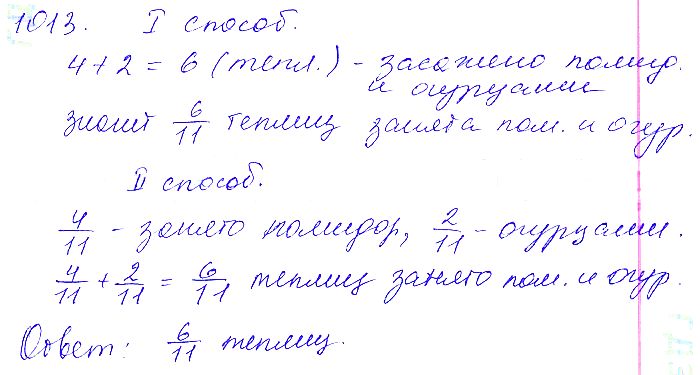 1013. I способ.
4 + 2 = 6 (тепл.) - засажено помидо.
и огурцами
значит 6/11 теплиц занята пом. и огур.
II способ.
4/11 - занято помидор, 2/11 - огурцами.
4/11 + 2/11 = 6/11 теплиц занято пом. и огур.
Ответ: 6/11 теплиц.